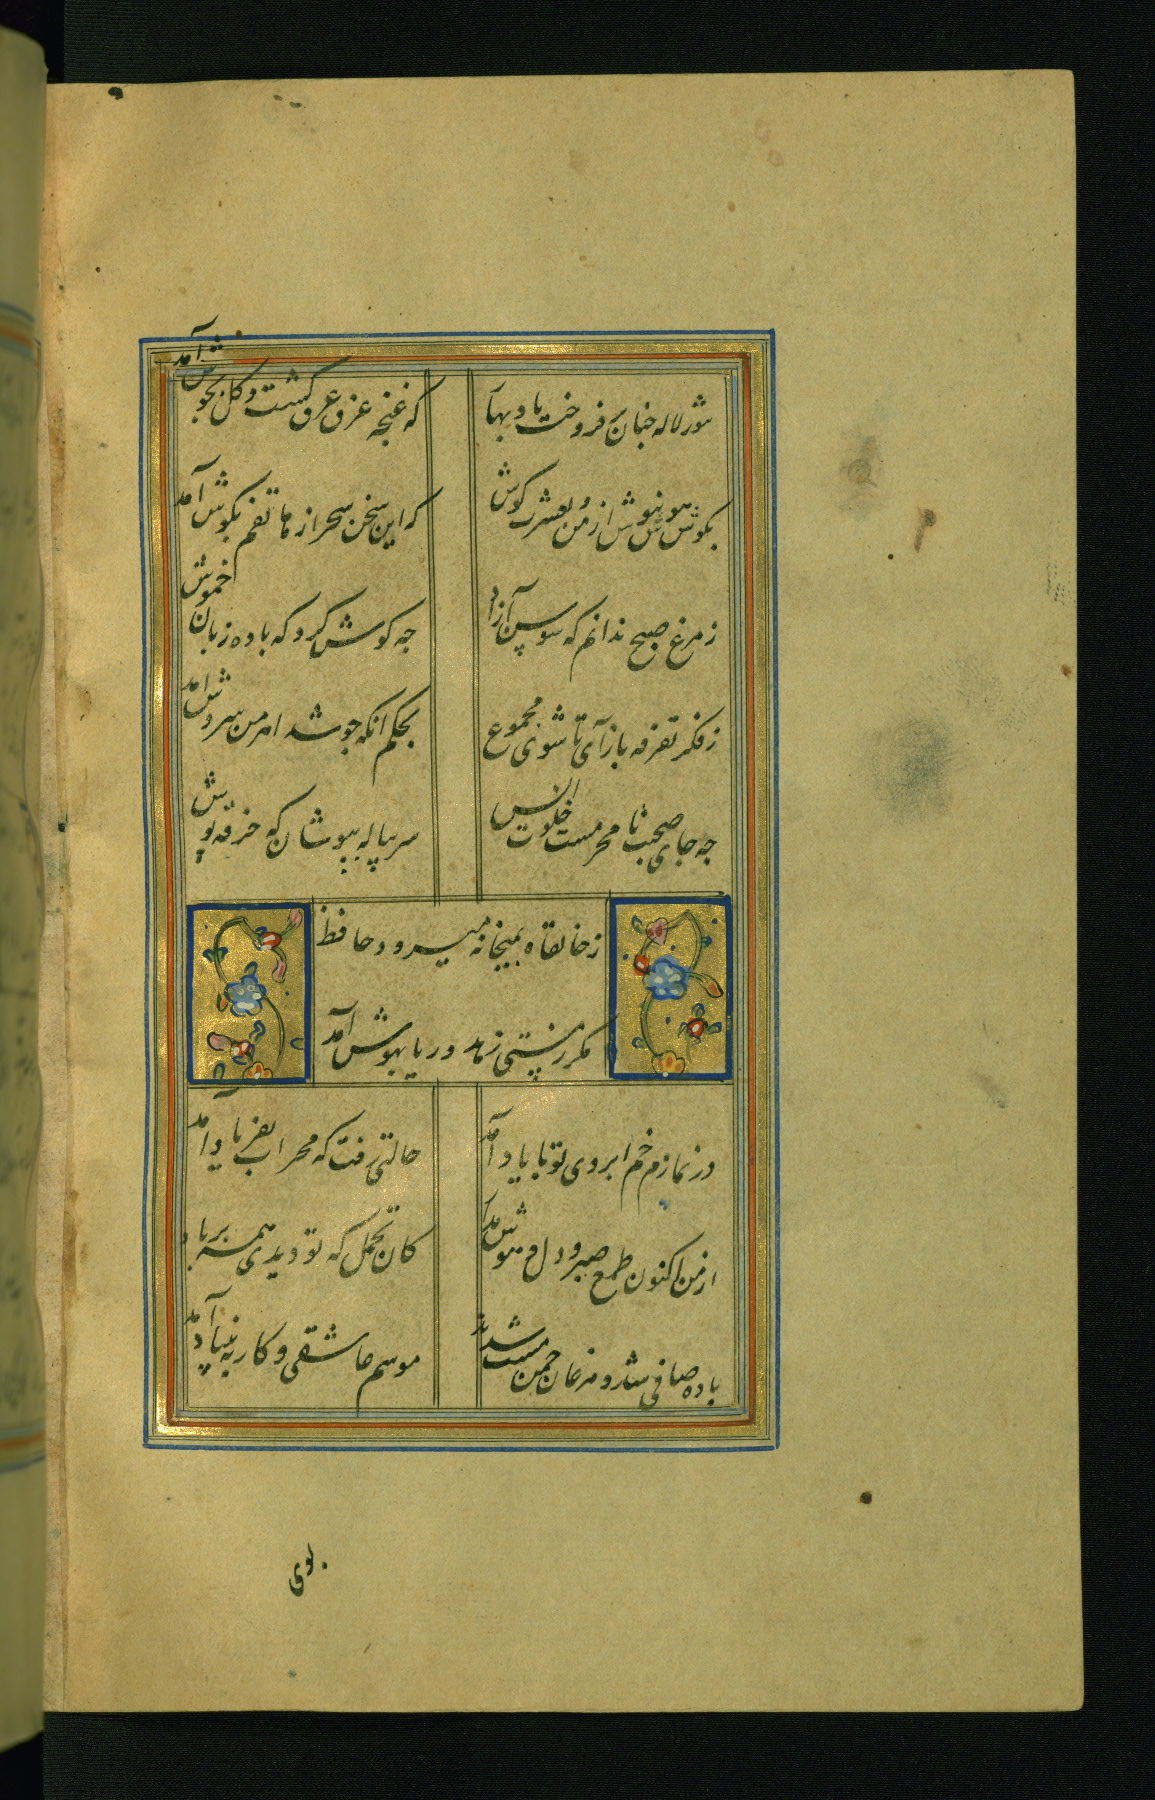 تنور لاله چنان بر فروخت باد بهار
که غنچه غرق عرق گشت و گل بجوش آمد
بگوش هوش نیوش از من و بعشرت کوش
که این سخن سحر از هاتفم بگوش آمد
ز مرغ صبح ندانم که سوسن آزاد
چه گوش کرد که با ده زبان خموش آمد
ز فکر تفرقه باز آی تا شوی مجموع
بحکم آنکه چو شد اهرمن سروش آمد
چه جای صحبت نامحرمست خلوت انس
سر پیاله بپوشان که خرقه پوش
ز خانقاه بمیخانه میرود حافظ
مگر ز مستی زهد و ریا بهوش آمد
در نمازم خم ابروی تو با یاد آمد
حالتی رفت که محراب بفریاد آمد
از من اکنون طمع صبر و دل و هوش مدار
کان تحمل که تو دیدی همه بر باد
باده صافی شد و مرغان چمن مست شدند
موسم عاشقی و کار به بنیاد آمد
بوی